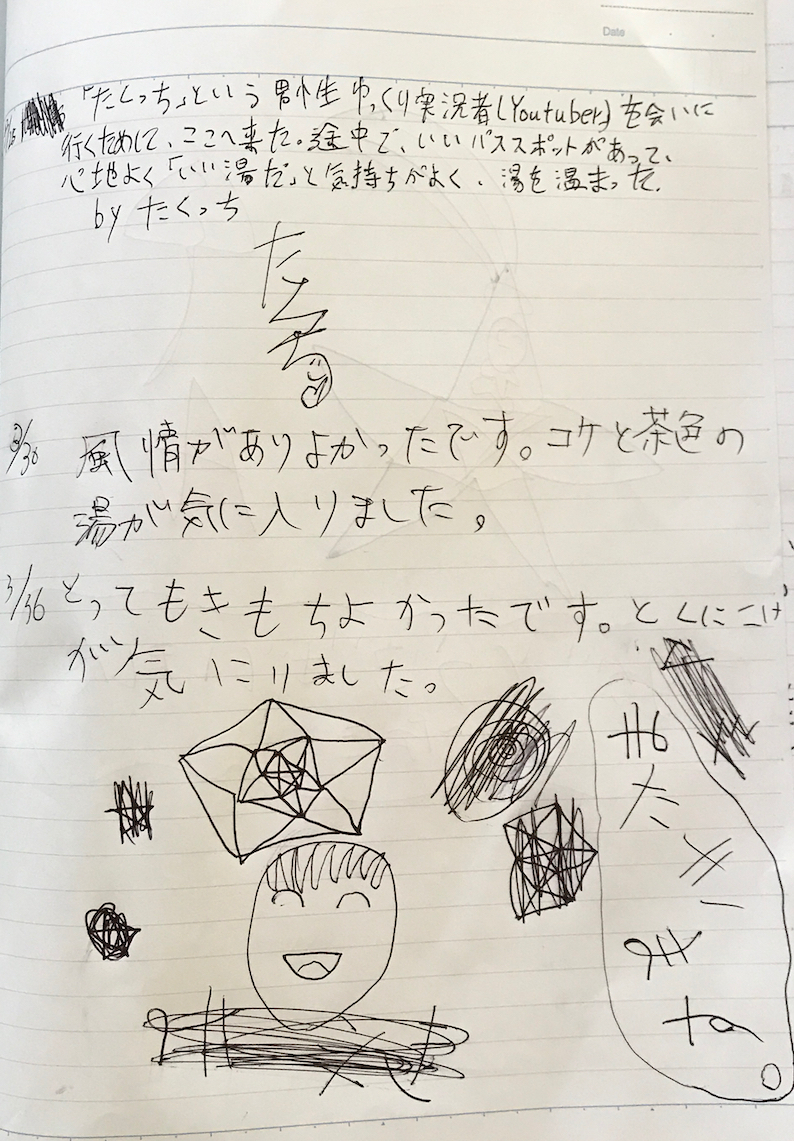 Date
「たくっち」という男性ゆっくり実況者(Youtuber)を会いに
行くためして、ここへ来た。途中で、いいバススポットがあって、
心地よく「いい湯だ」と気持ちがよく、湯を温まった。
by たくっち
たくっち
3/30 風情がありよかったです。コケと茶色の
湯が気に入りました。
3/36 とってもきもちよかったです。とくにこけ
が気にりました。
またきます。